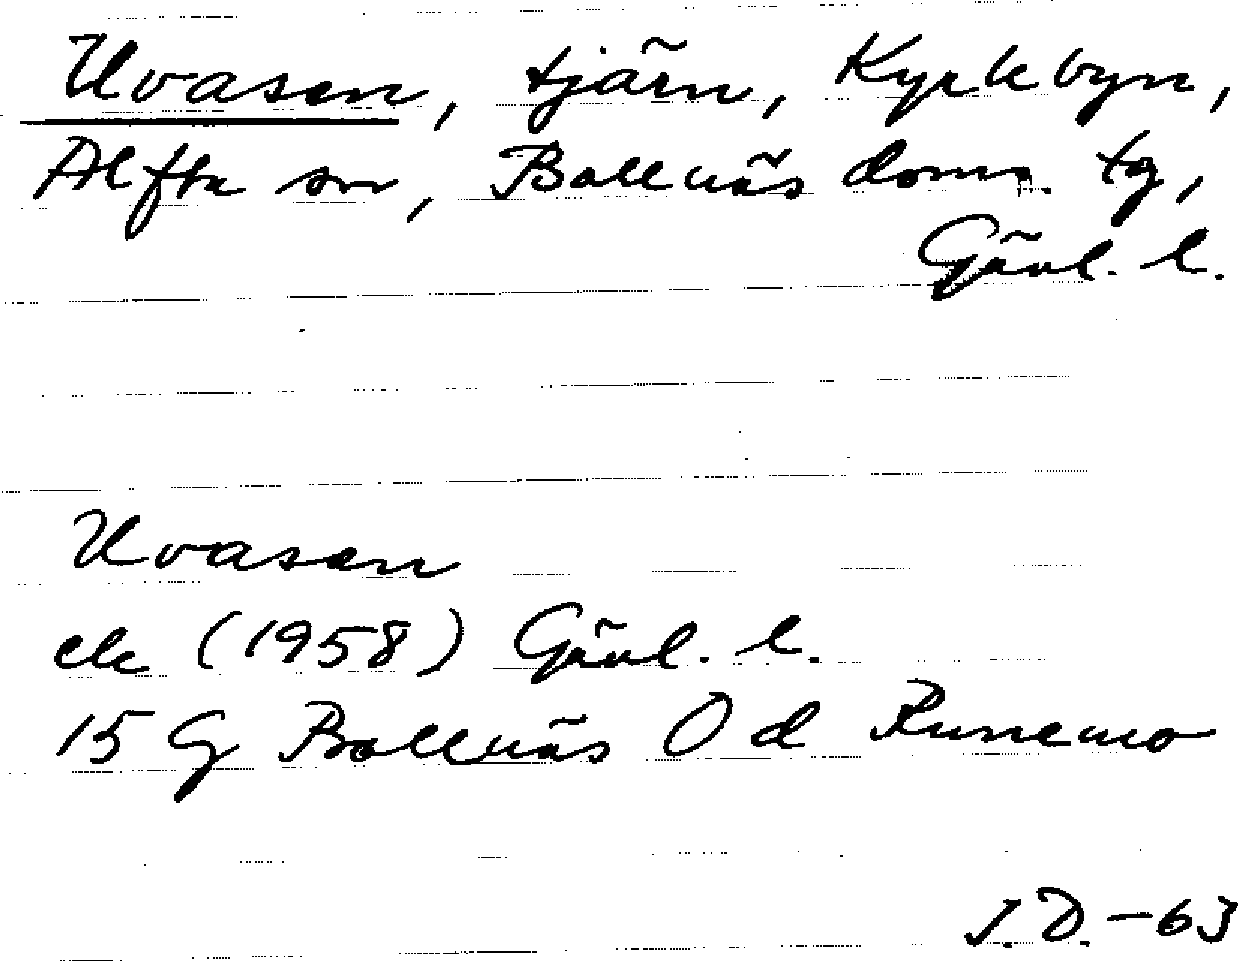 Uvasen, tjärn, Kyrkbyn,
Alfta sn, Bollnäs doms. tg,
Gävl. l.
Uvasen
ek (1958) Gävl. l.
15 G Bollnäs O d Runemo
J.D.-63